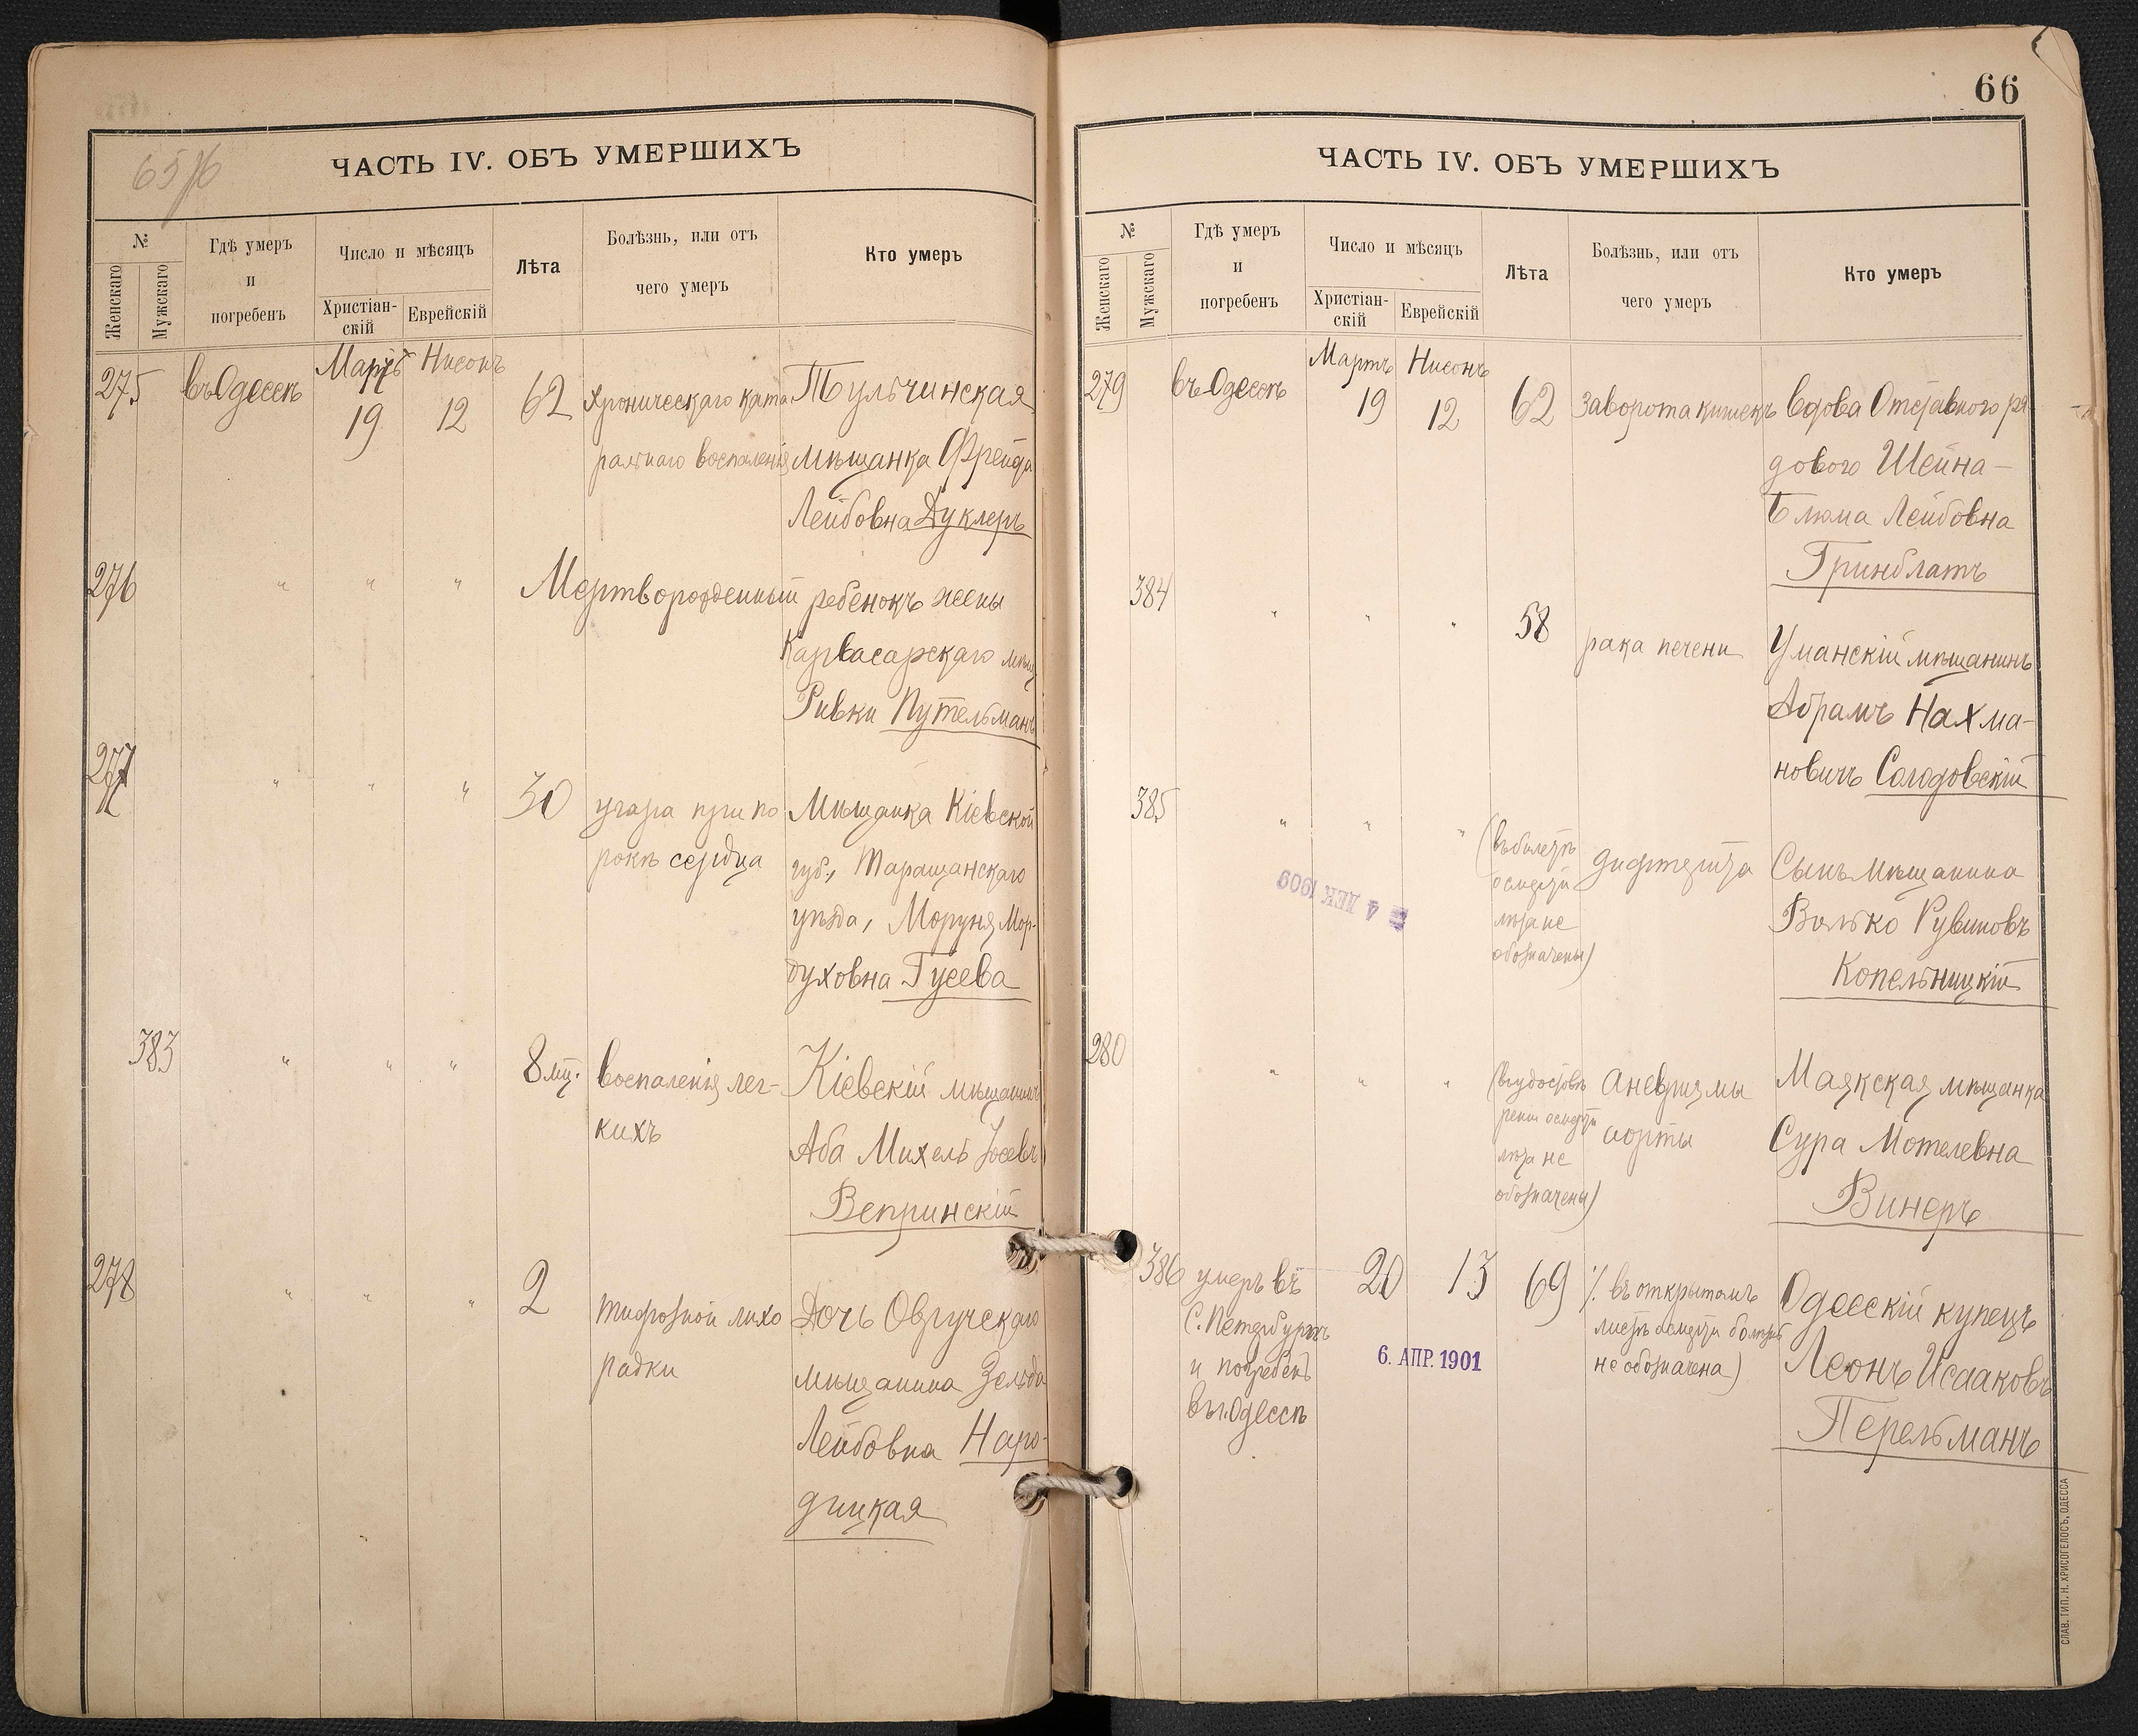 65 76
ЧАСТЬ IV. ОБЪ УМЕРШИХЪ
№
Женскаго
Мужскаго
Гдѣ умеръ
и
погребенъ
Число и мѣсяцъ
Христіан-
скій
Еврейскій
Лѣта
Болѣзнь, или отъ
чего умеръ
Кто умеръ
275 въ Одессѣ Мартъ 19 Нисонъ 12 62 хроническаго ката Тульчинская
ральнаго воспаленія мѣщанка Фрейда
Лейбовна Дуклеръ
276 " " " Мертворожденный ребенокъ жены
Карвасарскаго мѣщ
Ривки Путельманъ
277 " " " 30 угара при по Мѣщанка Кіевской
рокѣ сердца губ., Таращанскаго
уѣзда, Моруня Мор-
духовна Гусева
383 " " " 8 мц. воспаленія лег- Кіевскій мѣщанинъ
кихъ Аба Михель Іосевъ
Вепринскій
278 " " " 2 тифозной лихо Дочь Овручскаго
радки мѣщанина Зельда
Лейбовна Наро-
дицкая
66
ЧАСТЬ IV. ОБЪ УМЕРШИХЪ
№
Женскаго
Мужскаго
Гдѣ умеръ
и
погребенъ
Число и мѣсяцъ
Христіан-
скій
Еврейскій
Лѣта
Болѣзнь, или отъ
чего умеръ
Кто умеръ
279 въ Одессѣ Мартъ 19 Нисонъ 12 62 заворота кишекъ вдова Отставного ря-
дового Шейна-
Блюма Лейбовна
Гринблатъ
384 " " " 58 рака печени Уманскій мѣщанинъ
Абрамъ Нахма-
новичъ Солодовскій
385 " " " (въ билетѣ дифтерита Сынъ мѣщанина
о смерти Волько Рувиновъ
лѣта не Копельницкій
обозначены)
4 ДЕК 1909
280 " " " (въ удостовѣ Аневризмы Маякская мѣщанка
реніи о смерти аорты Сура Мотелевна
лѣта не Винеръ
обозначены)
386 умеръ въ 20 13 69 (въ открытомъ Одесскій купецъ
С. Петербургѣ листѣ о смерти болѣзнь Леонъ Исааковъ
и погребенъ не обозначена) Перельманъ
въ г. Одессѣ
6. АПР. 1901
СЛАВ. ТИП. Н. ХРИСОГЕЛОСЪ, ОДЕССА